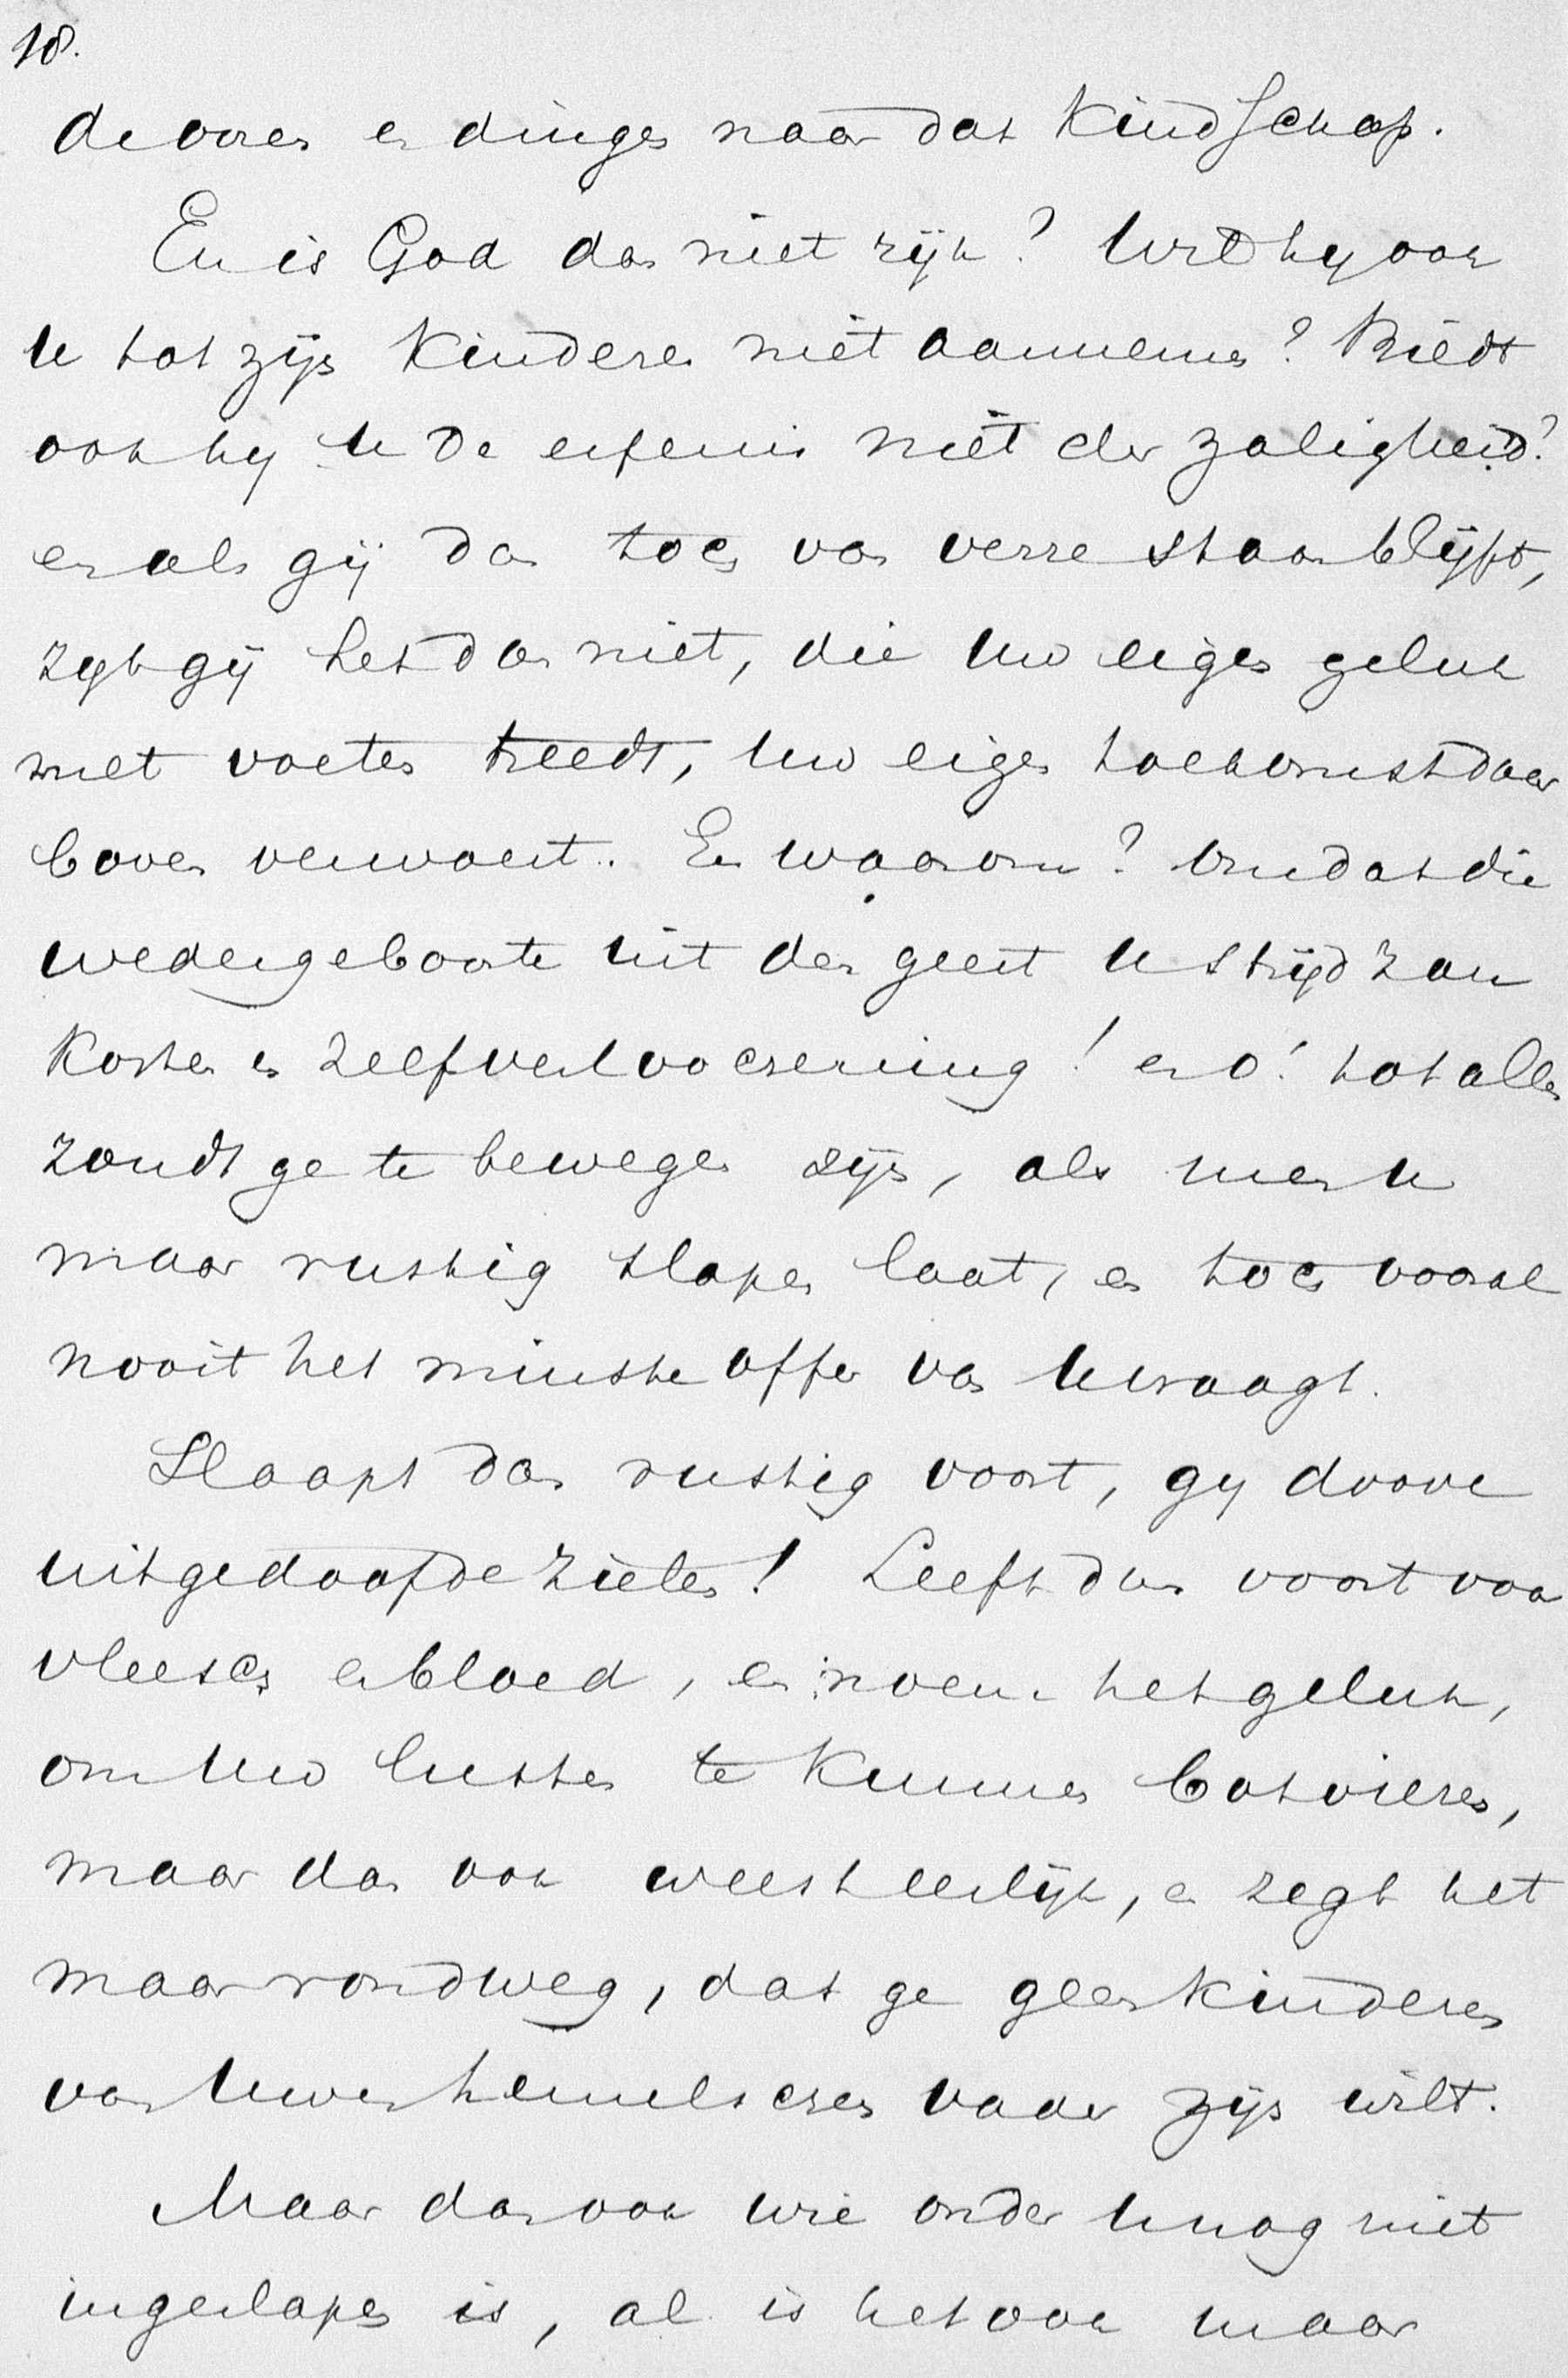 18.
dwoes en dinges naar dat Kindschap.
En is God dan niet rijk? Wil hy ook
U tot zijn Kinderen niet aannemen? Biedt
ook hy U de erfenis niet der zaligheid?
en als gij dan toch van verre staan blijft,
zijt gij het dan niet, die Uw eigen geluk
met voeten treedt, Uw eigen toekomst daar
boven verwoest. En waarom? Omdat die
wedergeboorte uit den geest U strijd zou
Kosten en zelfverloochening! en o! tot alles
zoudt ge te bewegen zijn, als men U
maar rustig slapen laat, en toch vooral
nooit het minste offer van U vraagt.
Slaapt dan rustig voort, gy doove
uitgedoofde zielen! Leeft dan voort voor
vleesch en bloed, en noem het geluk,
om Uw lusten te Kunnen botvieren,
maar dan ook weest eerlijk, en zegt het
maar rondweg, dat ge geen kinderen
van Uwen hemelschen vader zijn wilt.
Maar dan ook wie onder U nog niet
ingeslapen is, al is het ook maar